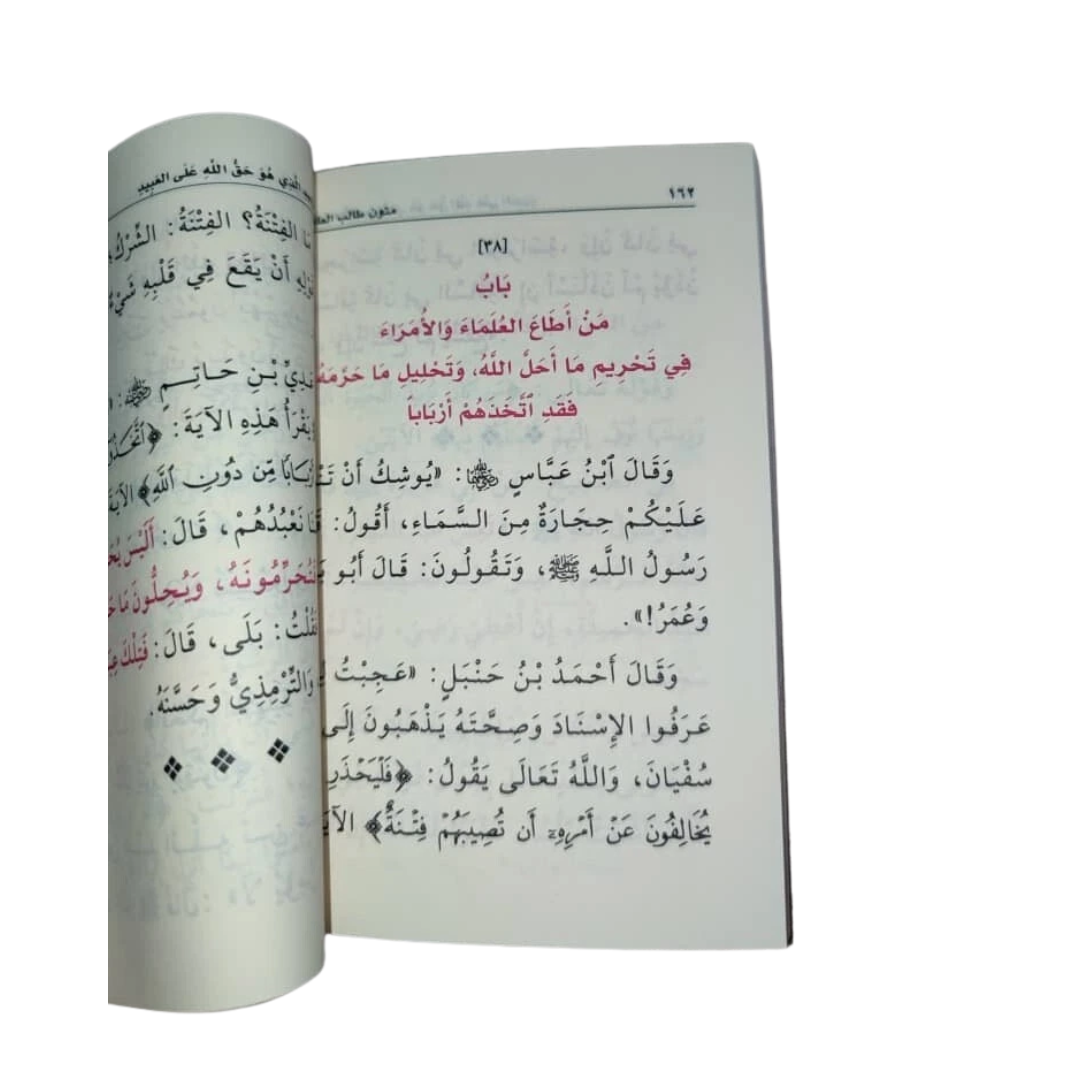 ١٦٢ متون طالب
[٣٨]
بَابُ
مَنْ أَطَاعَ العُلَمَاءَ وَالأُمَرَاءَ
فِي تَحْرِيمِ مَا أَحَلَّ اللَّهُ، وَتَحْلِيلِ مَا حَرَّمَهُ
فَقَدِ ٱتَّخَذَهُمْ أَرْبَاباً
وَقَالَ ٱبْنُ عَبَّاسٍ ﵄: «يُوشِكُ أَنْ
عَلَيْكُمْ حِجَارَةٌ مِنَ السَّمَاءِ، أَقُولُ:
رَسُولُ اللَّهِ ﷺ، وَتَقُولُونَ: قَالَ أَبُو
وَعُمَرُ!».
وَقَالَ أَحْمَدُ بْنُ حَنْبَلٍ: «عَجِبْتُ
عَرَفُوا الإِسْنَادَ وَصِحَّتَهُ يَذْهَبُونَ إِلَى
سُفْيَانَ، وَاللَّهُ تَعَالَى يَقُولُ: ﴿فَلْيَحْذَرِ
يُخَالِفُونَ عَنْ أَمْرِهِۦٓ أَن تُصِيبَهُمْ فِتْنَةٌ﴾
الَّذِي هُوَ حَقُّ اللَّهِ عَلَى العَبِيدِ
الفِتْنَةُ؟ الفِتْنَةُ: الشِّرْكُ
أَنْ يَقَعَ فِي قَلْبِهِ
بْنِ حَاتِمٍ ﵁:
هَذِهِ الآيَةَ:
مِّن دُونِ ٱللَّهِ﴾
نَعْبُدُهُمْ، قَالَ: أَلَيْسَ
وَيُحِلُّونَ مَا
بَلَى، قَالَ: فَتِلْكَ
وَالتِّرْمِذِيُّ وَحَسَّنَهُ.